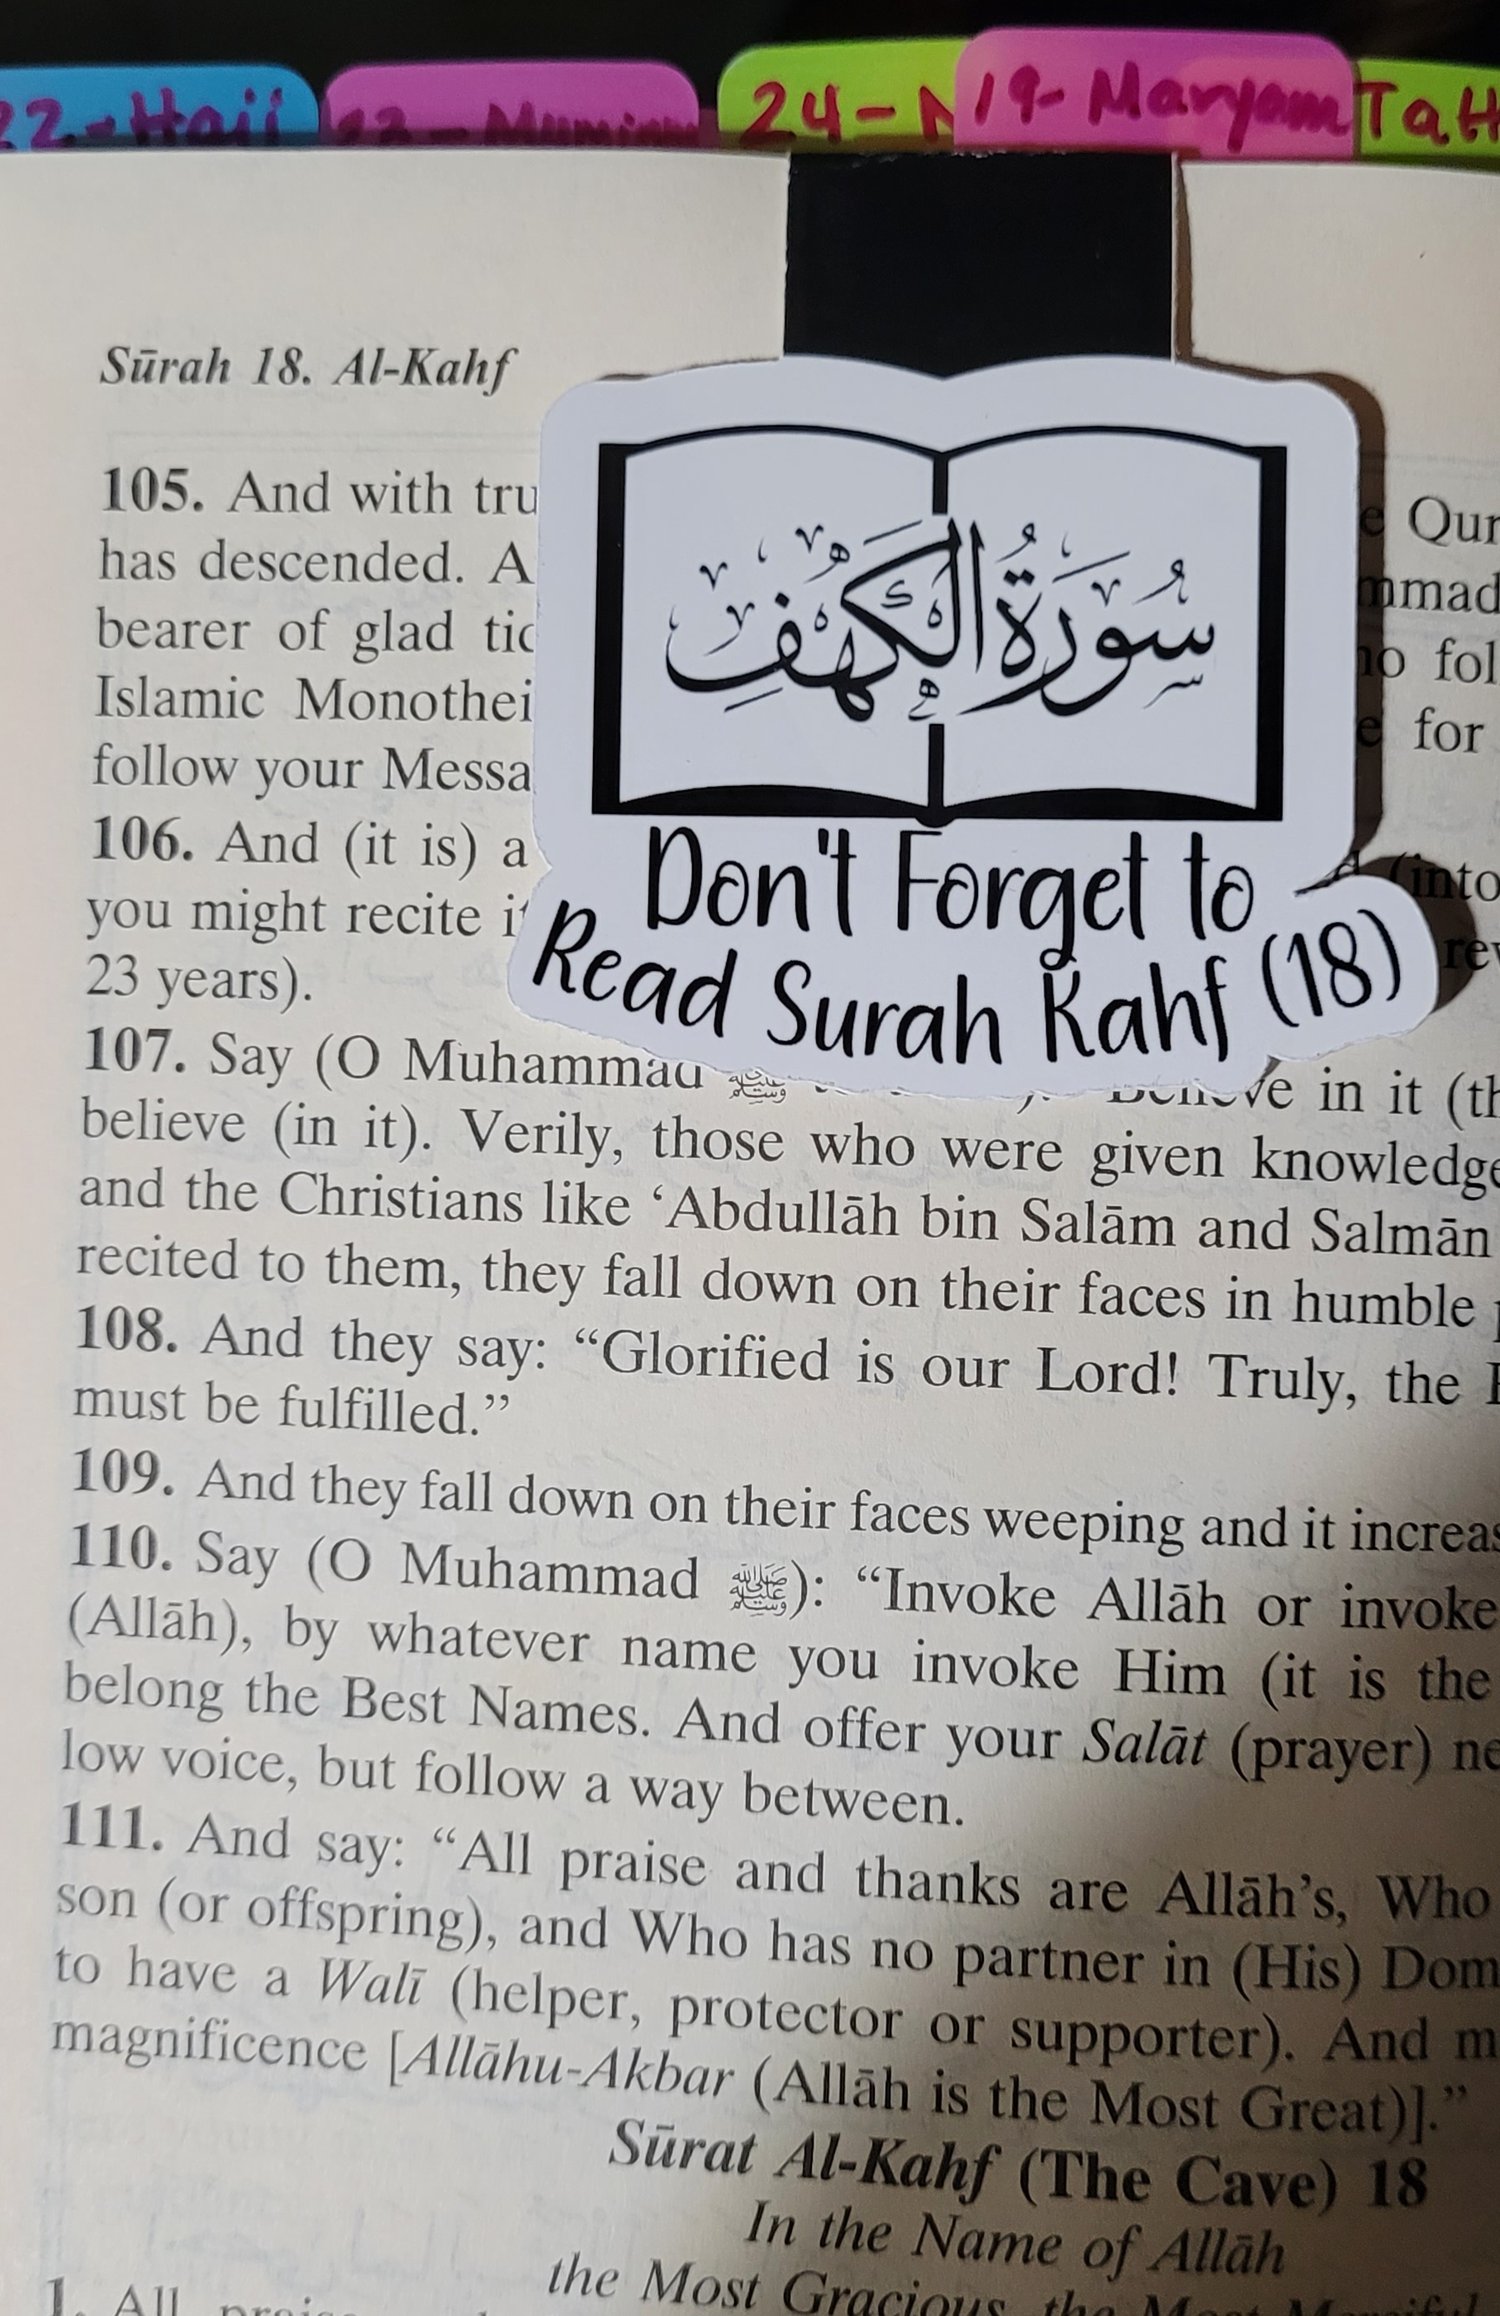 22-Hajj
23-Muminun
24-
19-Maryam
Sūrah 18. Al-Kahf
سُورَةُ الْكَهْفِ
Don't Forget to
Read Surah Kahf (18)
105. And with Qur
has descended.
bearer of glad
Islamic fol
follow your for
106. And (it is) a (into
you might recite
23 years).
107. Say (O Muhammad ﷺ in it
believe (in it). Verily, those who were given knowledge
and the Christians like ‘Abdullāh bin Salām and Salmān
recited to them, they fall down on their faces in humble
108. And they say: “Glorified is our Lord! Truly, the
must be fulfilled.”
109. And they fall down on their faces weeping and it increas
110. Say (O Muhammad ﷺ): “Invoke Allāh or invoke
(Allāh), by whatever name you invoke Him (it is the
belong the Best Names. And offer your Salāt (prayer) ne
low voice, but follow a way between.
111. And say: “All praise and thanks are Allāh’s, Who
son (or offspring), and Who has no partner in (His) Dom
to have a Walī (helper, protector or supporter). And m
magnificence [Allāhu-Akbar (Allāh is the Most Great)].”
Sūrat Al-Kahf (The Cave) 18
In the Name of Allāh
the Most Gracious, the Most Merciful
1. All praise